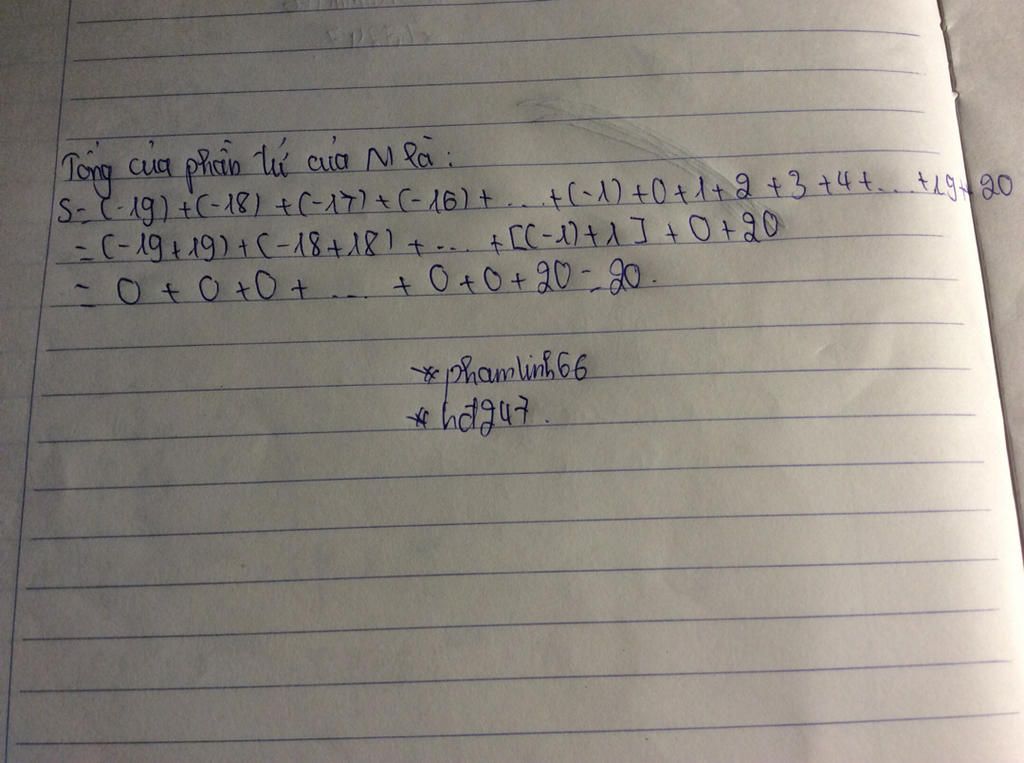 Tổng của phần tử của M là:
S = (-19) + (-18) + (-17) + (-16) + .... + (-1) + 0 + 1 + 2 + 3 + 4 + .... + 19 + 20
= (-19 + 19) + (-18 + 18) + .... + [(-1) + 1] + 0 + 20
= 0 + 0 + 0 + .... + 0 + 0 + 20 = 20.
* phamlinh66
* hdg247.